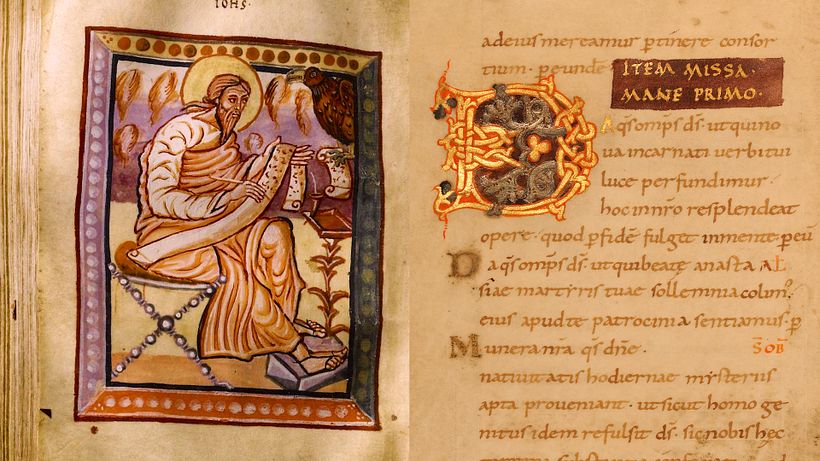 IOHS
adeius mereamur ptinere consor
tium · p eunde
ITEM MISSA ·
MANE PRIMO ·
Da qs omps ds · ut qui no
ua incarnati uerbi tui
luce perfundimur ·
hoc in nro resplendeat
opere · quod p fide fulget in mente · p eu
Da qs omps ds · ut qui beate anasta
siae martyris tuae sollemnia colim;
eius apud te patrocinia sentiamus · p
Munera nra qs dne · S OB
natiuitatis hodiernae mysteriis
apta proueniant · ut sicut homo ge
nitus idem refulsit ds · sic nobis hec